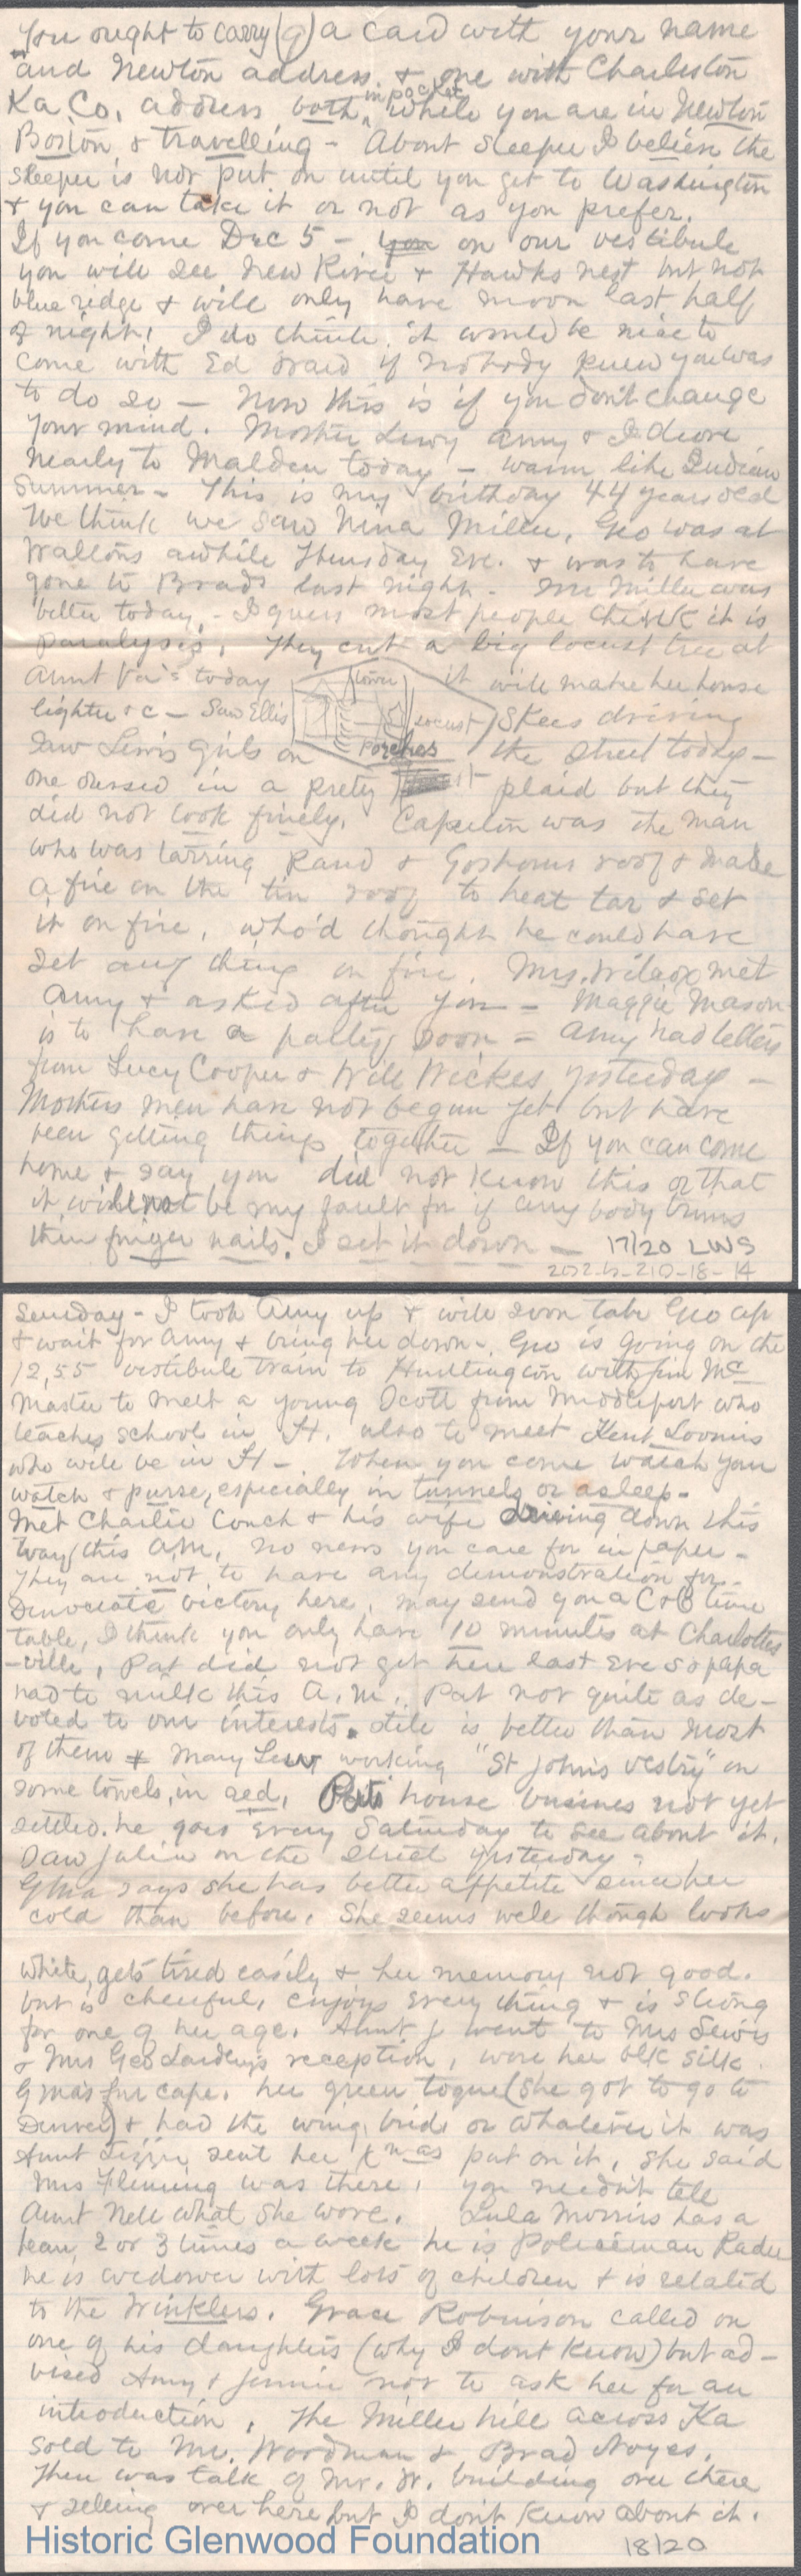 You ought to carry (g) a card with your name
and Newton address, & one with Charleston
Ka. Co. address both in pocket while you are in Newton
Boston & travelling - About sleeper I believe the
sleeper is not put on until you get to Washington
& you can take it or not as you prefer.
If you come Dec 5 - you on our vestibule
you will see New River & Hawks nest but not
blue ridge & will only have moon last half
of night. I do think it would be nice to
come with Ed if nobody knew you was
to do so - Now this is if you don't change
your mind. Mother Lewy Amy & I drove
nearly to Malden today - warm like Indian
Summer - This is my birthday 44 years old
We think we saw Nina Miller, Geo was at
Waltons awhile Thursday Eve. & was to have
gone to Brads last night. Mr Miller was
better today, - I guess most people think it is
paralysis. They cut a big locust tree at
Aunt Va's today it will make her house
lighter &c - Saw Ellis Skees driving
Tower
locust
Porches
Saw Lewis girls on the street today -
one dressed in a pretty plaid but they
did not look finely. Capelton was the man
who was tarring Rand & Goshorns roof & made
a fire on the tin roof to heat tar & set
it on fire, who'd thought he could have
set any thing on fire. Mrs. Wilcox met
Amy & asked after you - Maggie Mason
is to have a party soon - Amy had letters
from Lucy Cooper & Will Wickes yesterday -
Mothers men have not begun yet but have
been getting things together - If you can come
home & say you did not know this or that
it will not be my fault for if any body trims
their finger nails. I set it down - 17/20 LWS
2022-6-210-18-14
Sunday - I took Amy up & will soon take Geo up
& wait for Amy & bring her down -. Geo is going on the
12,55 vestibule train to Huntington with Jim Mc
Master to meet a young Scott from Middleport who
teaches school in H. also to meet Kent Loomis
who will be in H - When you come watch your
watch & purse, especially in tunnels or asleep -
Met Charlie Couch & his wife driving down this
way this A.M. no news you care for in paper -
They are not to have any demonstration for
Democratic victory here, may send you a C&O time
table, I think you only have 10 minutes at Charlottes
-ville, Pat did not get here last eve so papa
had to milk this A.M. Pat not quite as de-
voted to our interests. Still is better than most
of them & Mary Lewy working "St Johns Vestry" on
some towels, in red. Pats house business not yet
settled. he goes every Saturday to see about it.
Saw Julia on the street yesterday -
G'Ma says she has better appetite since her
cold than before. She seems well though looks
white, gets tired easily & her memory not good.
but is cheerful, enjoys every thing & is strong
for one of her age. Aunt J went to Mrs Lewis
& Mrs Geo Laidley's reception, wore her blk silk
G'mas fur cape. her green toque (she got to go to
Denver) & had the wing, bird or whatever it was
Aunt Lizzie sent her Xmas put on it. She said
Mrs Fleming was there, you needn't tell
Aunt Nell what she wore. Lula Morris has a
beau 2 or 3 times a week he is Policeman Rader
he is widower with lots of children & is related
to the Winklers. Grace Robinson called on
one of his daughters (why I dont know) but ad-
vised Amy & Jennie not to ask her for an
introduction, The Miller hill across Ka
sold to Mr. Woodman & Brad Noyes.
There was talk of Mr. W. building over there
& selling over here but I don't know about it.
Historic Glenwood Foundation 18/20